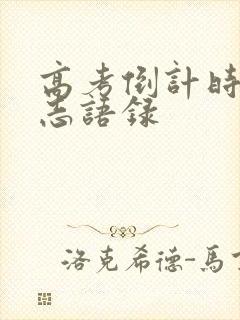 高考倒計時
志語錄
洛克希德-馬